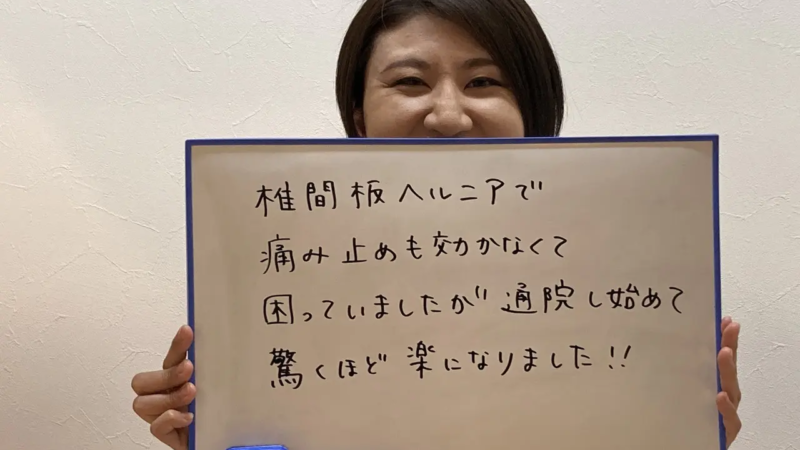 椎間板ヘルニアで
痛み止めも効かなくて
困っていましたが通院し始めて
驚くほど楽になりました!!